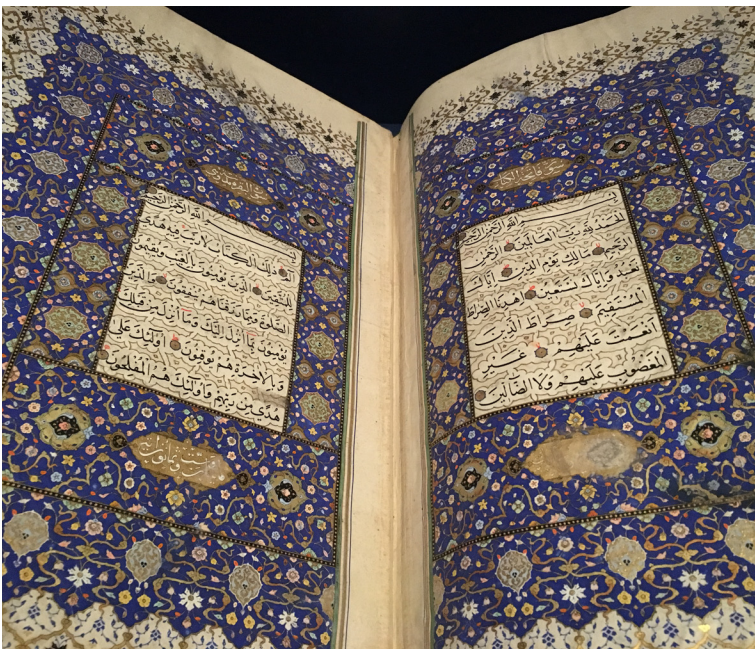 سورة فاتحة
بسم الله الرحمن الرحيم
الحمد لله رب العالمين الرحمن
الرحيم مالك يوم الدين اياك
نعبد واياك نستعين اهدنا الصراط
المستقيم صراط الذين
انعمت عليهم غير
المغضوب عليهم ولا الضالين
بسم الله الرحمن الرحيم
الم ذلك الكتاب لا ريب فيه هدى
للمتقين الذين يؤمنون بالغيب ويقيمون
الصلوة ومما رزقناهم ينفقون والذين
يؤمنون بما انزل اليك وما انزل من قبلك
وبالاخرة هم يوقنون اولئك على
هدى من ربهم واولئك هم المفلحون
ست وثمانون